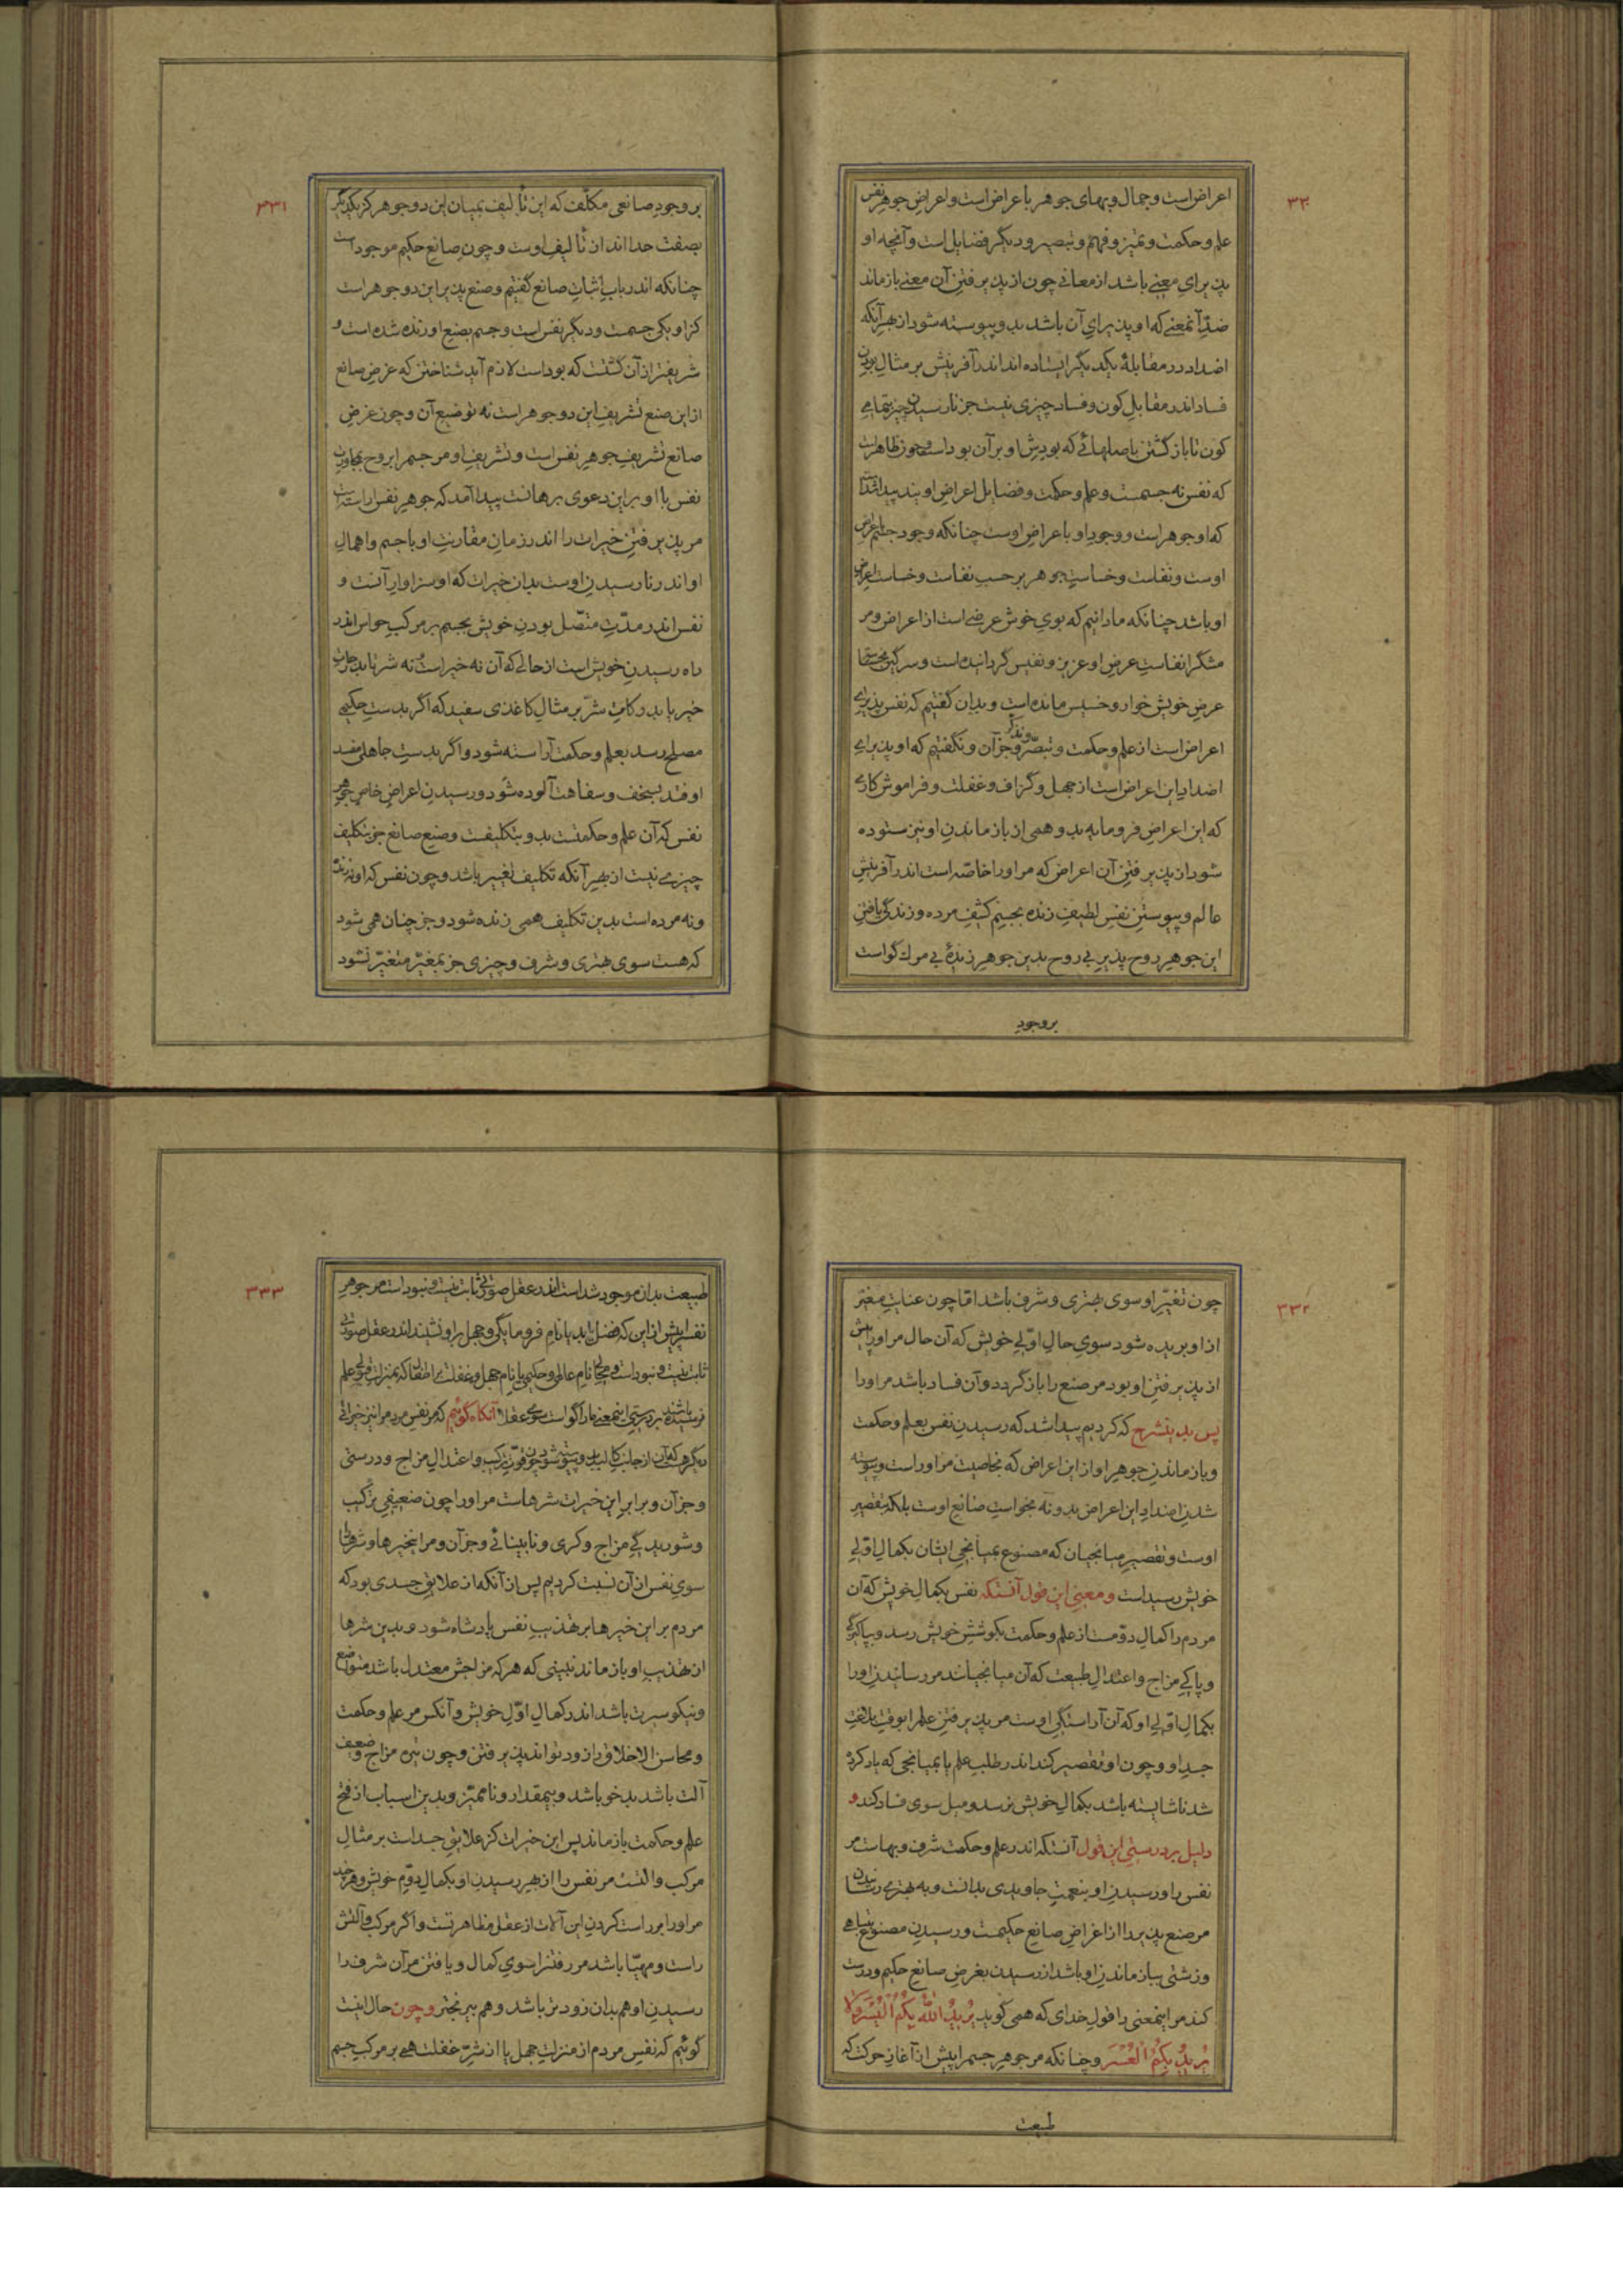 ۳۳۰
اعراض است و جمال و بهای جوهر باعراض است و اعراض جوهر نفس
علم و حکمت و تمیز و فهم و تبصیر و دیگر فضایل است و آنچه او
پذیرای معنی باشد از معانی چون از پذیرفتن آن معنی باز ماند
ضدّ آنمعنی که او پذیرای آن باشد بدو پیوسته شود از بهر آنکه
اضداد در مقابلهٔ یکدیگر ایستاده اند اندر آفرینش بر مثال بودن
فساد اندر مقابل کون و فساد چیزی نیست جز نارسیدن چیز بتمامی
کون تا باز گشتن باصلهائی که بودش او بر آن بود است و چون ظاهر است
که نفس نه جسمست و علم و حکمت و فضایل اعراض اویند پیدا شد است
که او جوهر است و وجود او باعراض اوست چنانکه وجود جسم باعراض
اوست و نفاست و خساست جوهر بر حسب نفاست و خساست اعراض
او باشد چنانکه ما دانیم که بوی خوش عرضی است از اعراض و مر
مشگ را نفاست عرض او عزیز و نفیس گردانیده است و سرگین بخساست
عرض خویش خوار و خسیس مانده است و بدان گفتیم که نفس پذیرای
اعراض است از علم و حکمت و تبصّر و تذکر و جز آن و نگفتیم که او پذیرای
اضداد این اعراض است از جهل و گزاف و غفلت و فراموش کاری
که این اعراض فرومایه بدو همی از باز ماندن او نیز ستوده
شود از پذیرفتن آن اعراض که مر او را خاصّه است اندر آفرینش
عالم و پیوستن نفس لطیف زنده بجسم کثیف مرده و زندگی یافتن
این جوهر روح پذیر بی روح بدین جوهر زندهٔ بی مرگ گواست
بر وجود
۳۳۱
بر وجود صانعی مکلّف که این تألیف بمیان این دو جوهر کز یکدیگر
بصفت جدا اند از تألیف اوست و چون صانع حکیم موجود است
چنانکه اندر باب اثبات صانع گفتیم و صنع پذیر این دو جوهر است
کز او یکی جسمست و دیگر نفس است و جسم بصنع او زنده شده است و
شریفتر از آن گشتست که بوداست لازم آید شناختن که غرض صانع
از این صنع تشریف این دو جوهر است نه توضیع آن و چون غرض
صانع تشریف جوهر نفس است و تشریف او مر جسم را بروح بمجاورت
نفس با او بر این دعوی برهانست پیدا آمد که جوهر نفس آراسته است
مر پذیرفتن خیرات را اندر زمان مقارنت او با جسم و اهمال
او اندر نارسیدن اوست بدان خیرات که او سزاوار آنست و
نفس اندر مدّت متصّل بودن خویش بجسم بر مرکب حواس اندر
راه رسیدن خویش است از حالی که آن نه خیر است و نه شر تا بدرجات
خیر یا بدرکات شرّ بر مثال کاغذی سفید که اگر بدست حکیمی
مصلح رسد بعلم و حکمت آراسته شود و اگر بدست جاهلی مفسد
اوفتد بسخف و سفاهت آلوده شود و رسیدن اعراض خاص جوهر
نفس که آن علم و حکمتست بدو بتکلیفست و صنع صانع جز بتکلیف
چیزی نیست از بهر آنکه تکلیف تغییر باشد و چون نفس که او نه زنده
و نه مرده است بدین تکلیف همی زنده شود و جز چنان همی شود
که هست سوی بهتری و شرف و چیزی جز بمغیّر متغیّر نشود
۳۳۲
چون تغیّر او سوی بهتری و شرف باشد امّا چون عنایت مغیّر
از او بریده شود سوی حال اوّلی خویش که آن حال مر او را پیش
از پذیرفتن او بود مر صنع را باز گردد و آن فساد باشد مر او را
پس بدین شرح که کردیم پیدا شد که رسیدن نفس بعلم و حکمت
و باز ماندن جوهر او از این اعراض که بخاصیت مر او راست و پیوسته
شدن اضداد این اعراض بدو نه بخواست صانع اوست بلکه بتقصیر
اوست و تقصیر میانجیان که مصنوع بمیانجی ایشان بکمال اوّلی
خویش رسیداست و معنی این قول آنستکه نفس بکمال خویش که آن
مردم را کمال دوّمست از علم و حکمت بکوشش خویش رسد و بپاکیزگی
و پاکی مزاج و اعتدال طبیعت که آن میانجیانند مر رسانیدن او را
بکمال اوّلی او که آن آراستگی اوست مر پذیرفتن علم را بوقت بلاغت
جسد او و چون او تقصیر کند اندر طلب علم یا بمیانجی که یاد کرده
شد ناشایسته باشد بکمال خویش نرسد و میل سوی فساد کند و
دلیل بر درستی این قول آنستکه اندر علم و حکمت شرف و بهاست مر
نفس را و رسیدن او بنعمت جاویدی بدانست و به بهتری رسانیدن
مر صنع پذیر را از اغراض صانع حکیمست و رسیدن مصنوع بتباهی
و زشتی بباز ماندن او باشد از رسیدن بغرض صانع حکیم و درست
کند مر اینمعنی را قول خدای که همی گوید یُرِیدُ اللهُ بِکُمُ الْیُسْرَ وَلا
یُرِیدُ بِکُمُ الْعُسْرَ و چنانکه مر جوهر جسم را پیش از آغاز حرکت که
طبیعت
۳۳۳
طبیعت بدان موجود شد است اندر عقل صورتی ثابت نیست و نبود است مر جوهر
نفس را پیش از این که فضل یابد یا نام فرومایگی و جهل بر او نشیند اندر عقل صورتی
ثابت نیست و نبود است و محلّ نام عالمی و حکیمی یا نام جهل و غفلت بر اطفال که بمنزلت قبول علم
نرسیده باشند بر درستی اینمعنی ما را گواست سوی عقلا آنگاه گوئیم که مر نفس مردم را نیز خیراتی
دیگر هست که آن از جانب کالبد بدو پیوسته شود چون قوّت ترکیب و اعتدال مزاج و درستی
و جز آن و برابر این خیرات شرهاست مر او را چون ضعیفی ترکیب
و شوریدگی مزاج و کری و نابینائی و جز آن و مر این خیرها و شرها را
سوی نفس از آن نسبت کردیم پس از آنکه از علایق جسدی بود که
مردم بر این خیرها بر تهذیب نفس پادشاه شود و بدین شرها
از تهذیب او باز ماند نبینی که هر که مزاجش معتدل باشد متواضع
و نیکو سیرت باشد اندر کمال اوّل خویش و آنکس مر علم و حکمت
و محاسن الاخلاق را زود تواند پذیرفتن و چون تیره مزاج و ضعیف
آلت باشد بد خو باشد و بیمقدار و نا ممیّز و بدین اسباب از فتح
علم و حکمت باز ماند پس این خیرات کز علایق جسد است بر مثال
مرکب و آلتست مر نفس را از بهر رسیدن او بکمال دوّم خویش و هر چند
مر او را بر راست کردن این آلات از عقل مظاهر تست و اگر مرکب و آلتش
راست و مهیّا باشد مر رفتن را سوی کمال و یافتن مر آن شرف را
رسیدن او هم بدان زودتر باشد و هم بی رنجتر و چون حال اینست
گوئیم که نفس مردم از منزلت جهل یا از شرّ غفلت همی بر مرکب جسم